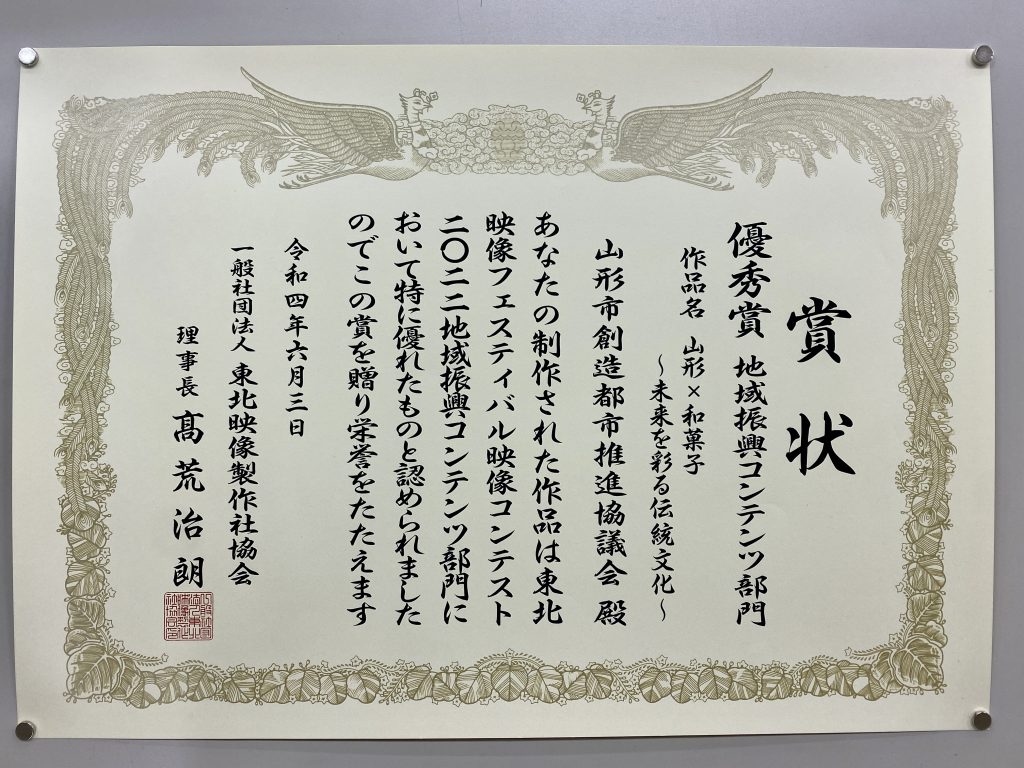 賞状
優秀賞 地域振興コンテンツ部門
作品名 山形×和菓子
～未来を彩る伝統文化～
山形市創造都市推進協議会 殿
あなたの制作された作品は東北
映像フェスティバル映像コンテスト
二〇二二地域振興コンテンツ部門に
おいて特に優れたものと認められました
のでこの賞を贈り栄誉をたたえます
令和四年六月三日
一般社団法人 東北映像製作社協会
理事長 髙荒治朗